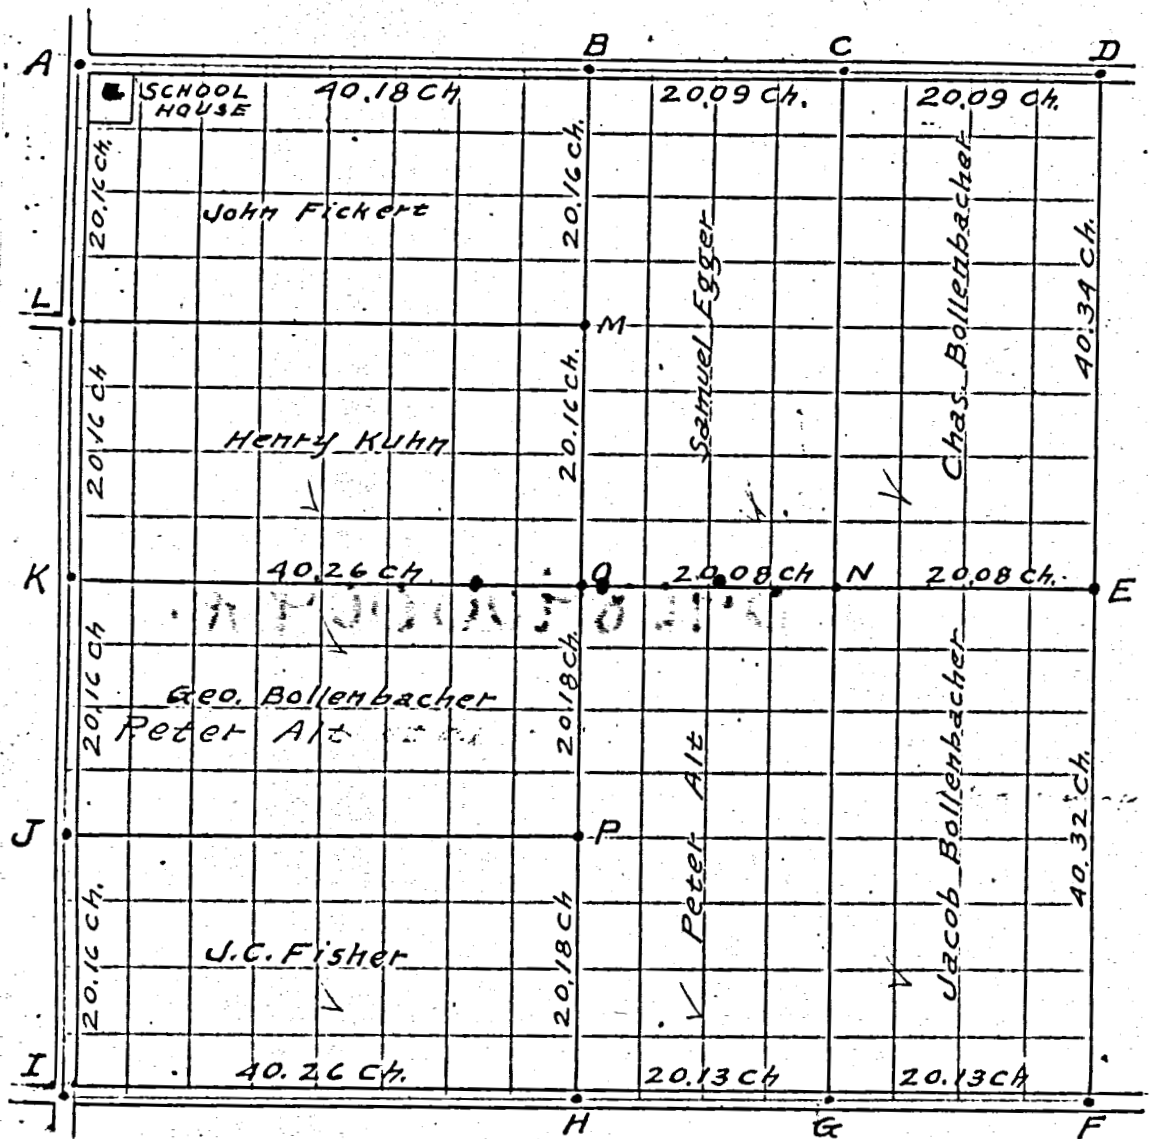 A B C D
SCHOOL
HOUSE
40.18 Ch
20.09 Ch.
20.09 Ch.
20.16 Ch.
20.16 Ch.
John Fickert
Samuel Egger
Chas. Bollenbacher
40.34 Ch.
L
M
20.16 Ch
20.16 Ch.
Henry Kuhn
K
40.26 Ch
O
20.08 Ch
N
20.08 Ch.
E
20.16 Ch
20.18 Ch.
Geo. Bollenbacher
Peter Alt
Peter Alt
Jacob Bollenbacher
40.32 Ch.
J
P
20.16 Ch.
20.18 Ch
J.C. Fisher
I
40.26 Ch.
20.13 Ch
20.13 Ch
H G F